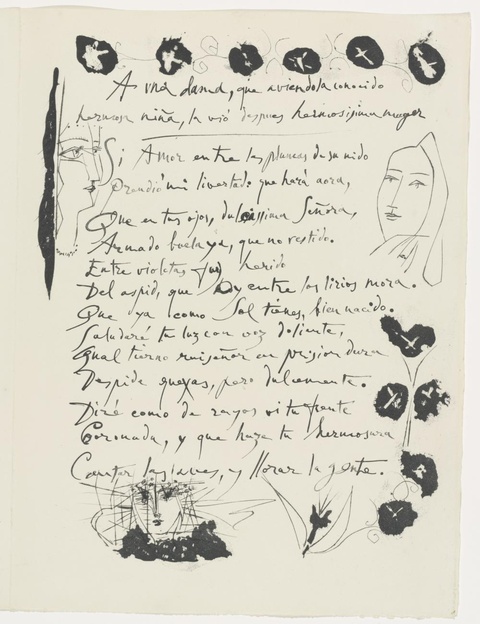 A una dama, que aviendola conocido
hermosa niña, la vió despues hermosisima muger
Si Amor entre las plumas de su nido
Prendió mi livertad: que hará aora,
Que en tus ojos, dulcissima Señora,
Armado buela ya, que no vestido.
Entre violetas fui herido
Del aspid, que oy entre los lirios mora.
Que ya como Sol tienes, bien nacido.
Saludaré tu luz con voz doliente,
Qual tierno ruiseñor en prision dura
Despide quejas, pero dulcemente.
Diré como de rayos vi tu frente
Coronada, y que haze tu hermosura
Cantar las aves, y llorar la gente.